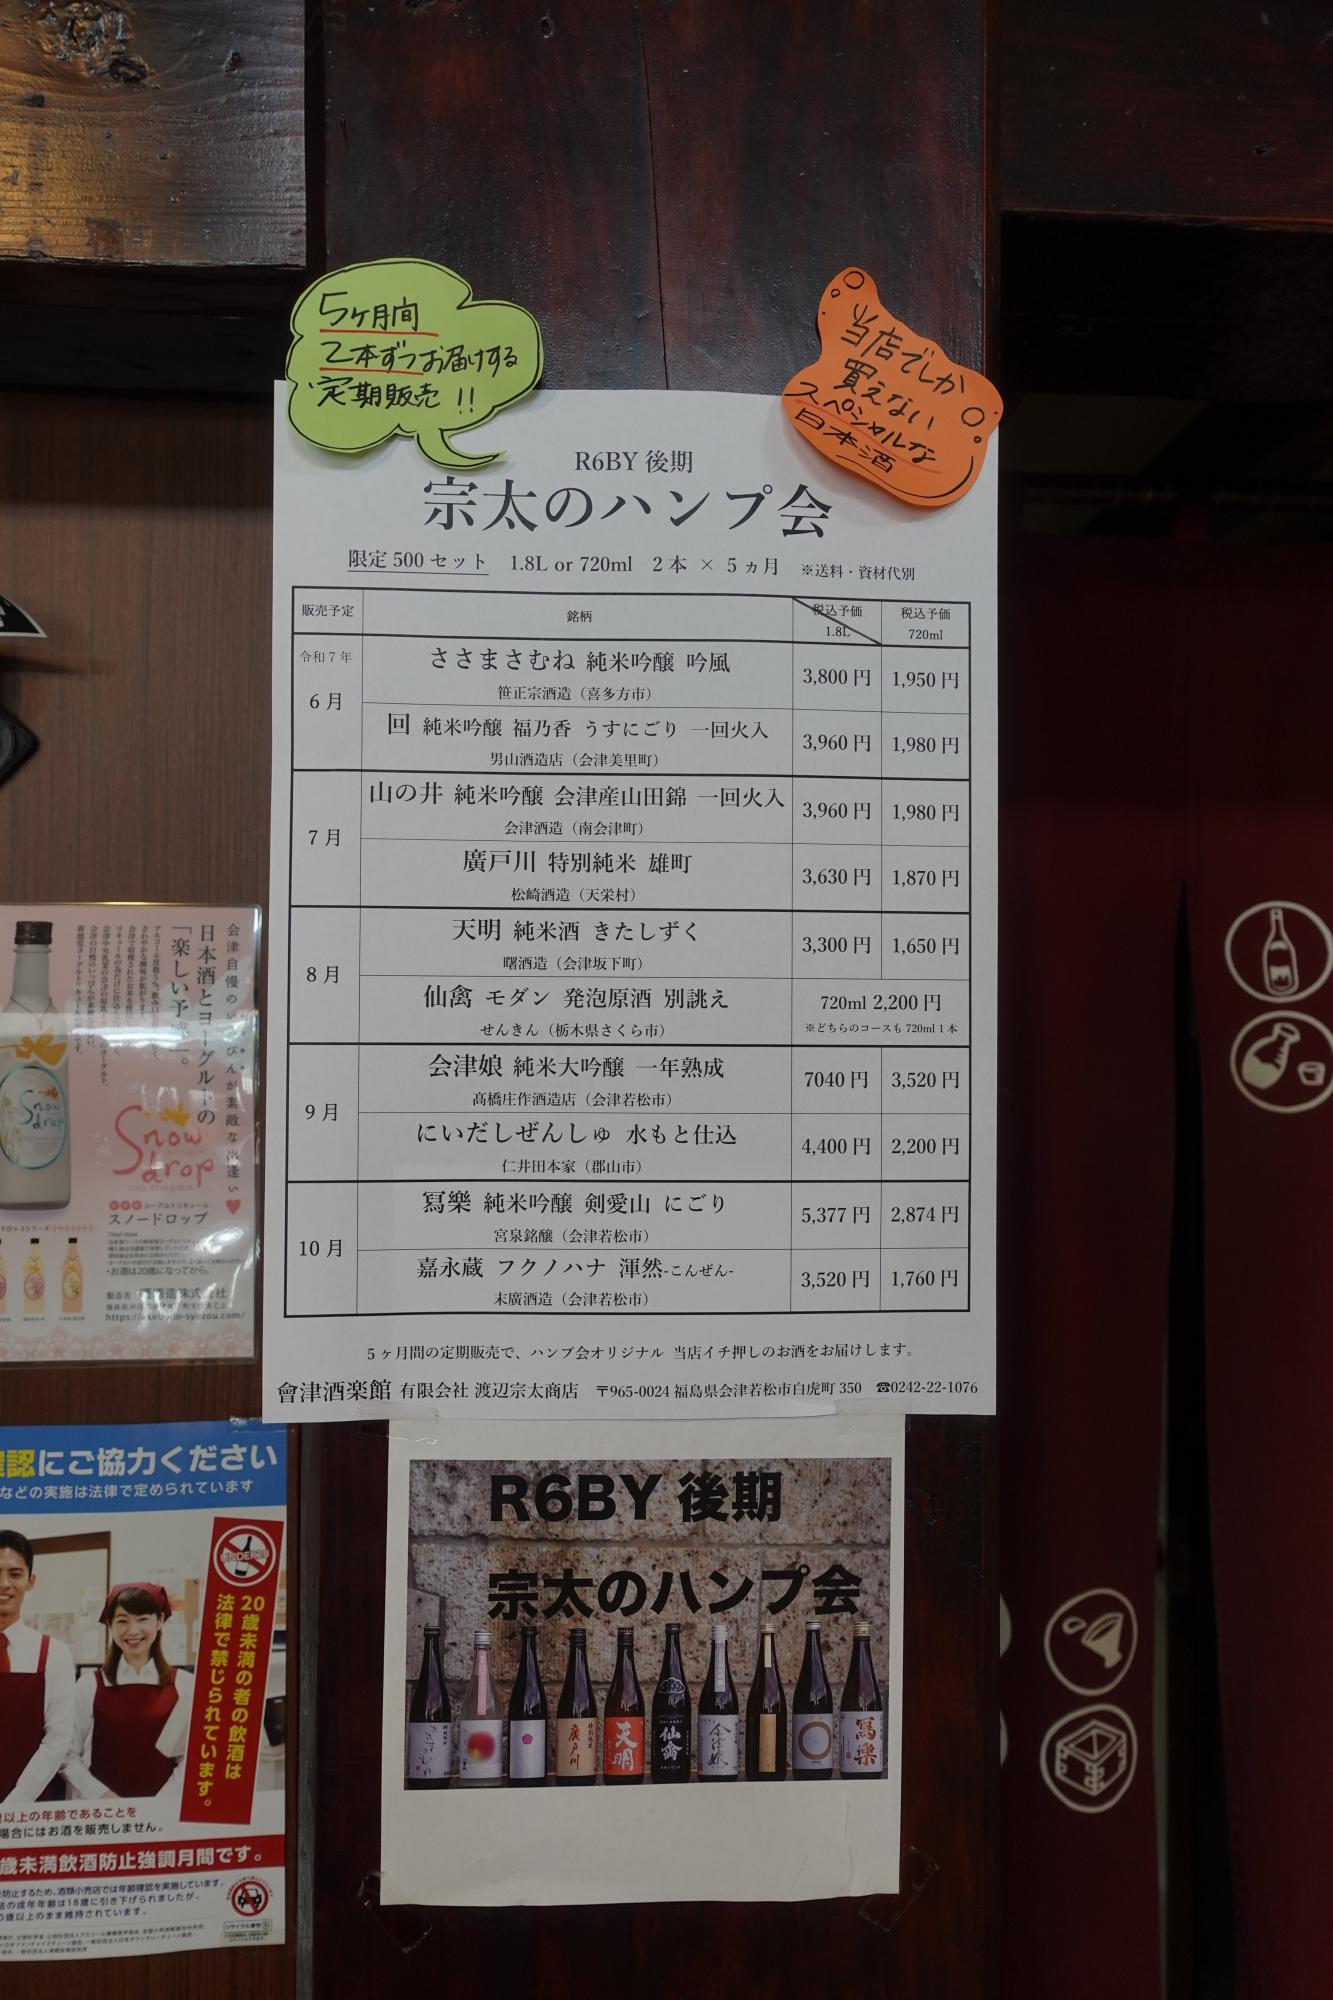 5ヶ月間
2本ずつお届けする
定期販売!!
当店でしか
買えない
スペシャルな
日本酒
R6BY 後期
宗太のハンプ会
限定 500 セット 1.8L or 720ml 2本 × 5ヵ月 ※送料・資材代別
販売予定 銘柄 税込予価 1.8L 税込予価 720ml
令和7年
6月
ささまさむね 純米吟醸 吟風 3,800円 1,950円
笹正宗酒造(喜多方市)
回 純米吟醸 福乃香 うすにごり 一回火入 3,960円 1,980円
男山酒造店(会津美里町)
7月
山の井 純米吟醸 会津産山田錦 一回火入 3,960円 1,980円
会津酒造(南会津町)
廣戸川 特別純米 雄町 3,630円 1,870円
松崎酒造(天栄村)
8月
天明 純米酒 きたしずく 3,300円 1,650円
曙酒造(会津坂下町)
仙禽 モダン 発泡原酒 別誂え 720ml 2,200円
せんきん(栃木県さくら市) ※どちらのコースも 720ml 1本
9月
会津娘 純米大吟醸 一年熟成 7040円 3,520円
髙橋庄作酒造店(会津若松市)
にいだしぜんしゅ 水もと仕込 4,400円 2,200円
仁井田本家(郡山市)
10月
冩樂 純米吟醸 剣愛山 にごり 5,377円 2,874円
宮泉銘醸(会津若松市)
嘉永蔵 フクノハナ 渾然-こんぜん- 3,520円 1,760円
末廣酒造(会津若松市)
5ヶ月間の定期販売で、ハンプ会オリジナル 当店イチ押しのお酒をお届けします。
會津酒楽館 有限会社 渡辺宗太商店 〒965-0024 福島県会津若松市白虎町 350 ☎0242-22-1076
R6BY 後期
宗太のハンプ会
廣戸川
天明
仙禽
会津娘
冩楽
会津自慢の
日本酒とヨーグルトの
「楽しい予感」。
Snow drop
Snow drop
YOGURT LIQUEUR
ヨーグルトリキュール
スノードロップ
・お酒は20歳になってから。
認にご協力ください
などの実施は法律で定められています
UNDER20
20歳未満の者の飲酒は
法律で禁じられています。
以上の年齢であることを
場合にはお酒を販売しません。
歳未満飲酒防止強調月間です。
防止するため、酒類小売店では年齢確認を実施しています。
法の成年年齢は18歳に引き下げられましたが、
0歳以上のまま維持されています。